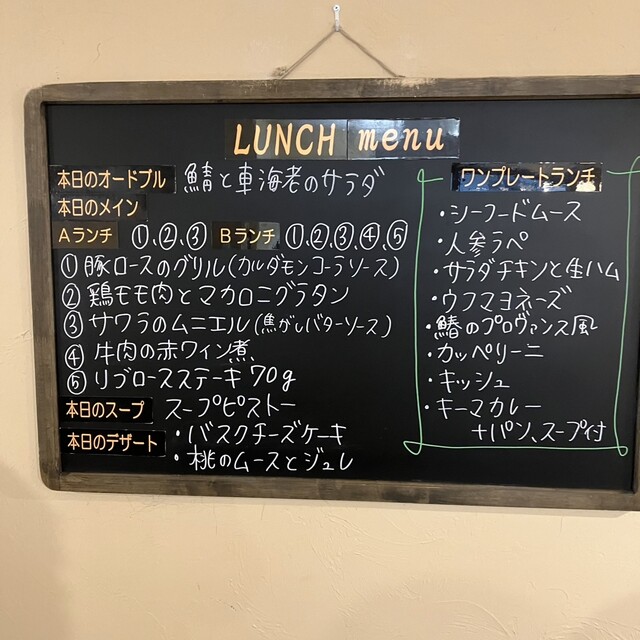 LUNCH menu
本日のオードブル 鯖と車海老のサラダ
本日のメイン
Aランチ ①、②、③ Bランチ ①、②、③、④、⑤
①豚ロースのグリル(カルダモンコーラソース)
②鶏モモ肉とマカロニグラタン
③サワラのムニエル(焦がしバターソース)
④牛肉の赤ワイン煮
⑤リブロースステーキ70g
本日のスープ スープピストー
本日のデザート ・バスクチーズケーキ
・桃のムースとジュレ
ワンプレートランチ
・シーフードムース
・人参ラペ
・サラダチキンと生ハム
・ウフマヨネーズ
・鰆のプロヴァンス風
・カッペリーニ
・キッシュ
・キーマカレー
+パン、スープ付